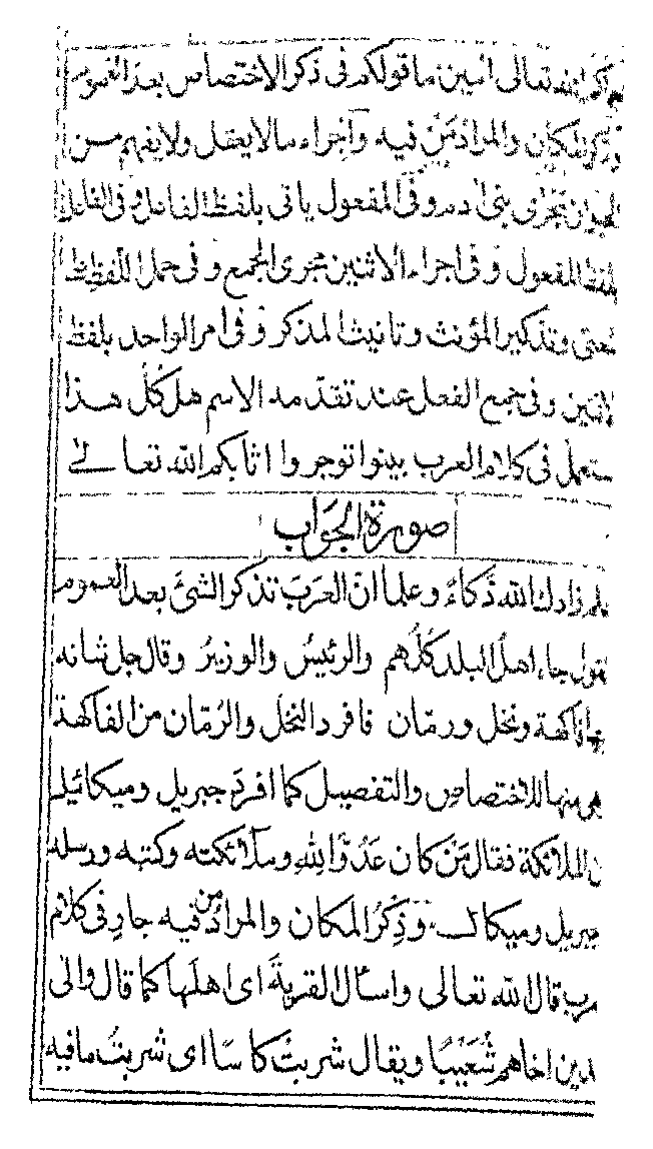 الله تعالى امين ما قولكم فى ذكر الاختصاص بعد العموم
المكان والمراد مَنْ فيه وَاجراء ما لا يعقل ولا يفهم من
مجرى بنى ادم وفى المفعول ياتى بلفظ الفاعل وفى الفاعل
بلفظ المفعول وَ فى اجراء الاثنين مجرى الجمع و فى حمل اللفظ
وتذكير المؤنث وتانيث المذكر و فى امر الواحد بلفظ
وفى جمع الفعل عند تقدّمه الاسم هل كلُّ هذا
فى كلام العرب بينوا توجروا اثابكم الله تعالى
صورة الجَوَاب
زادك الله ذَكاءً وعلما انّ العَرَبَ تذكر الشئَ بعد العموم
جاء اهلُ البلد كُلُّهم والرئيسُ والوزيرُ وقال جل شانه
فاكهة ونخل ورمّان فافرد النخل والرُمّان من الفاكهة
للاختصاص والتفصيل كما افردَ جبريل وميكائيل
الملائكة فقال مَنْ كان عَدُوًّا لِلّهِ وملآئكته وكتبه ورسله
جبريل وميكال وَذِكْرُ المكان والمرادُ من فيه جارٍ فى كلام
قال الله تعالى واسئال القريةَ اى اهلَها كما قال والى
مدين اخاهم شُعَيْبًا ويقال شربتُ كاسًا اى شربتُ ما فيه